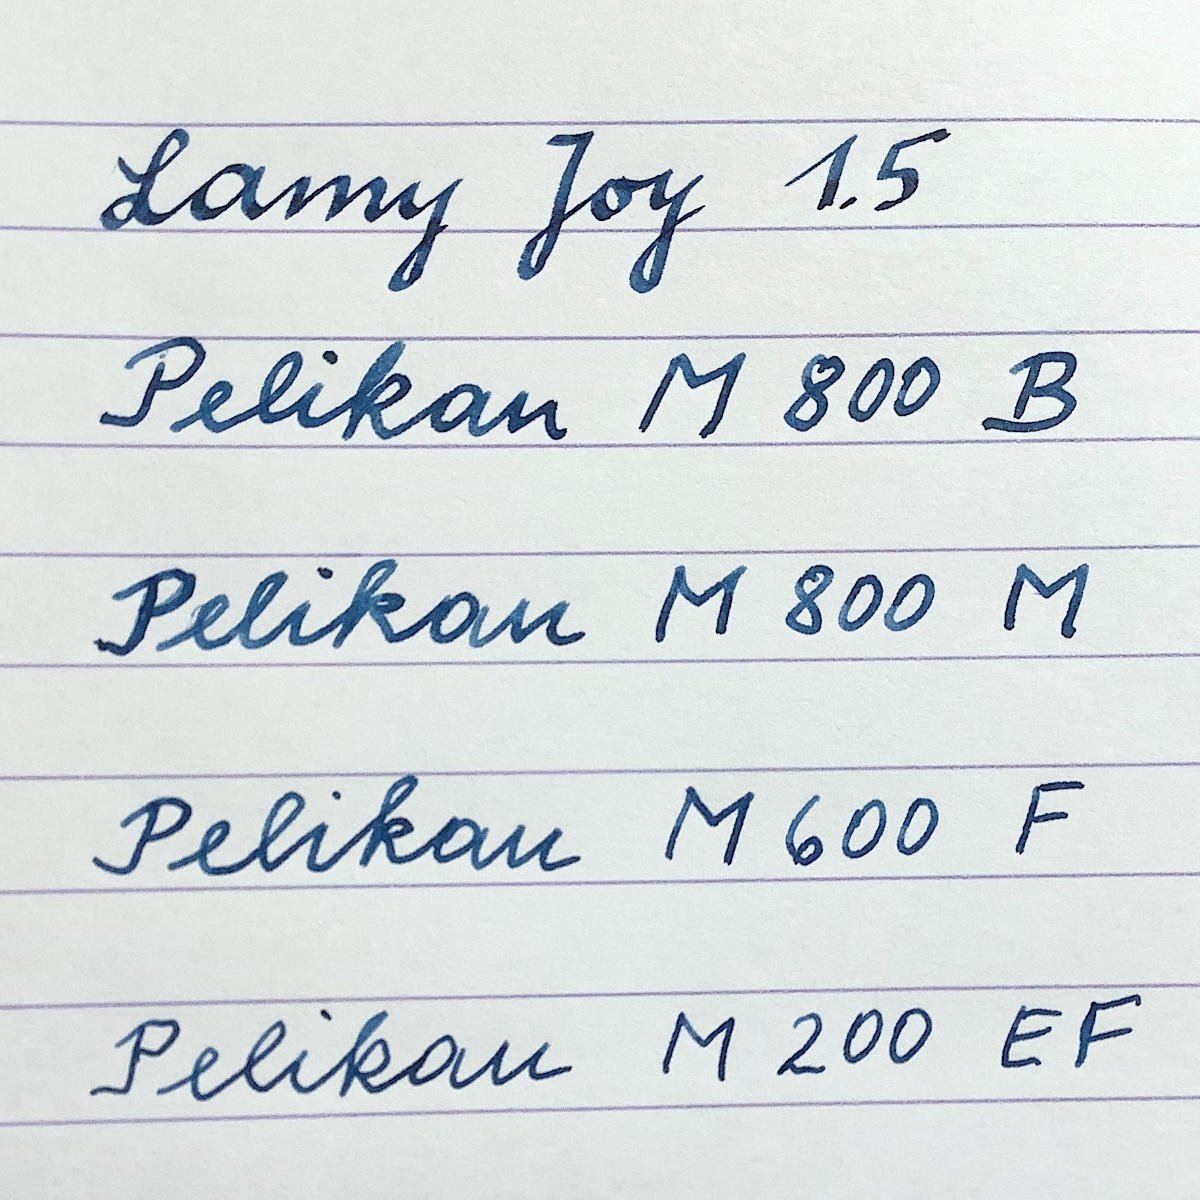 Lamy Joy 1.5
Pelikan M 800 B
Pelikan M 800 M
Pelikan M 600 F
Pelikan M 200 EF